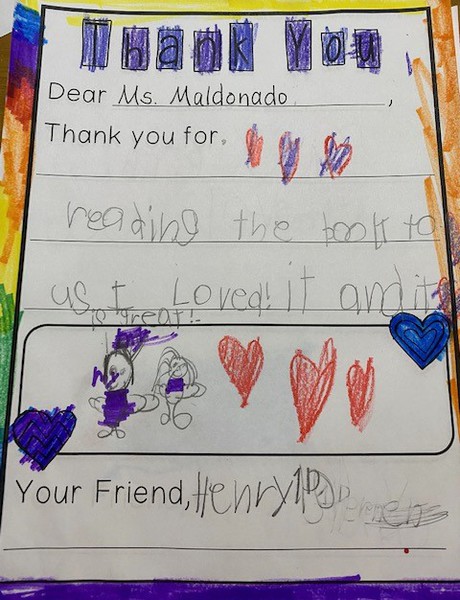 Thank You
Dear Ms. Maldonado,
Thank you for
reading the book to
us I Loved! it and it
is great!
Your Friend, Henry